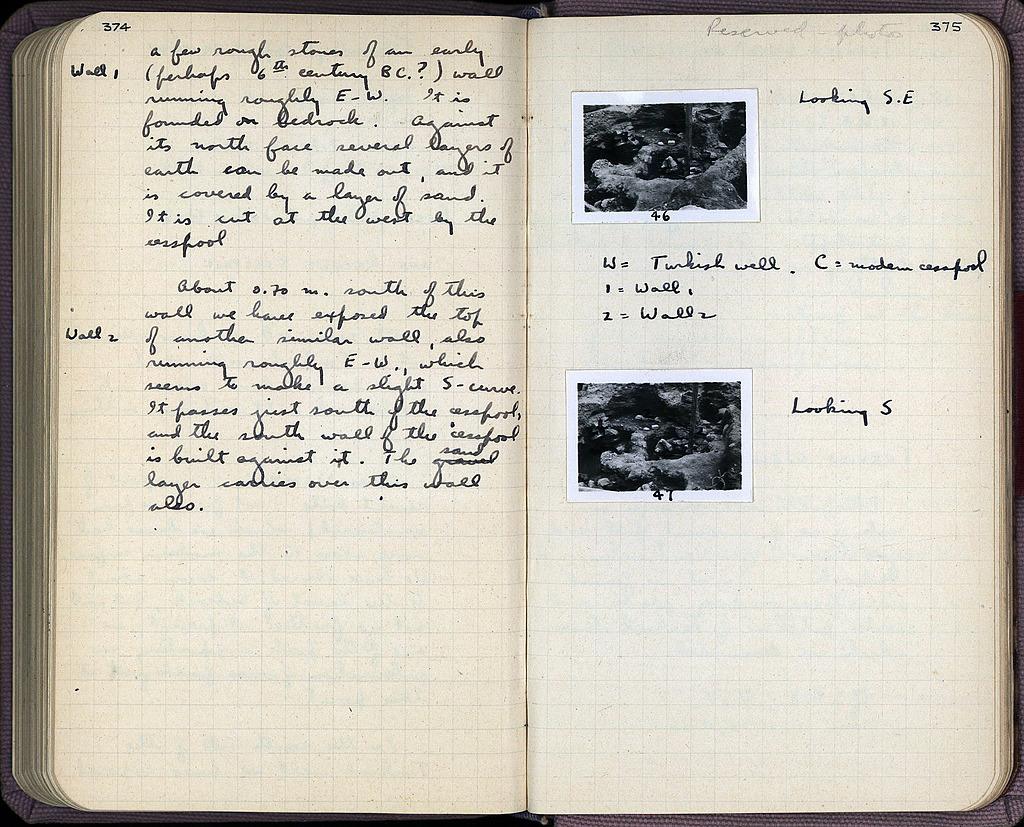 374
a few rough stones of an early
Wall 1 (perhaps 6th century B.C.?) wall
running roughly E-W. It is
founded on bedrock. Against
its north face several layers of
earth can be made out, and it
is covered by a layer of sand.
It is cut at the west by the
cesspool
About 0.70 m. south of this
wall we have exposed the top
Wall 2 of another similar wall, also
running roughly E-W., which
seems to make a slight S-curve.
It passes just south of the cesspool,
and the south wall of the cesspool
is built against it. The gravel sand
layer carries over this wall
also.
Reserved - photos 375
Looking S.E
46
W = Turkish well. C = modern cesspool
1 = Wall 1
2 = Wall 2
Looking S
47